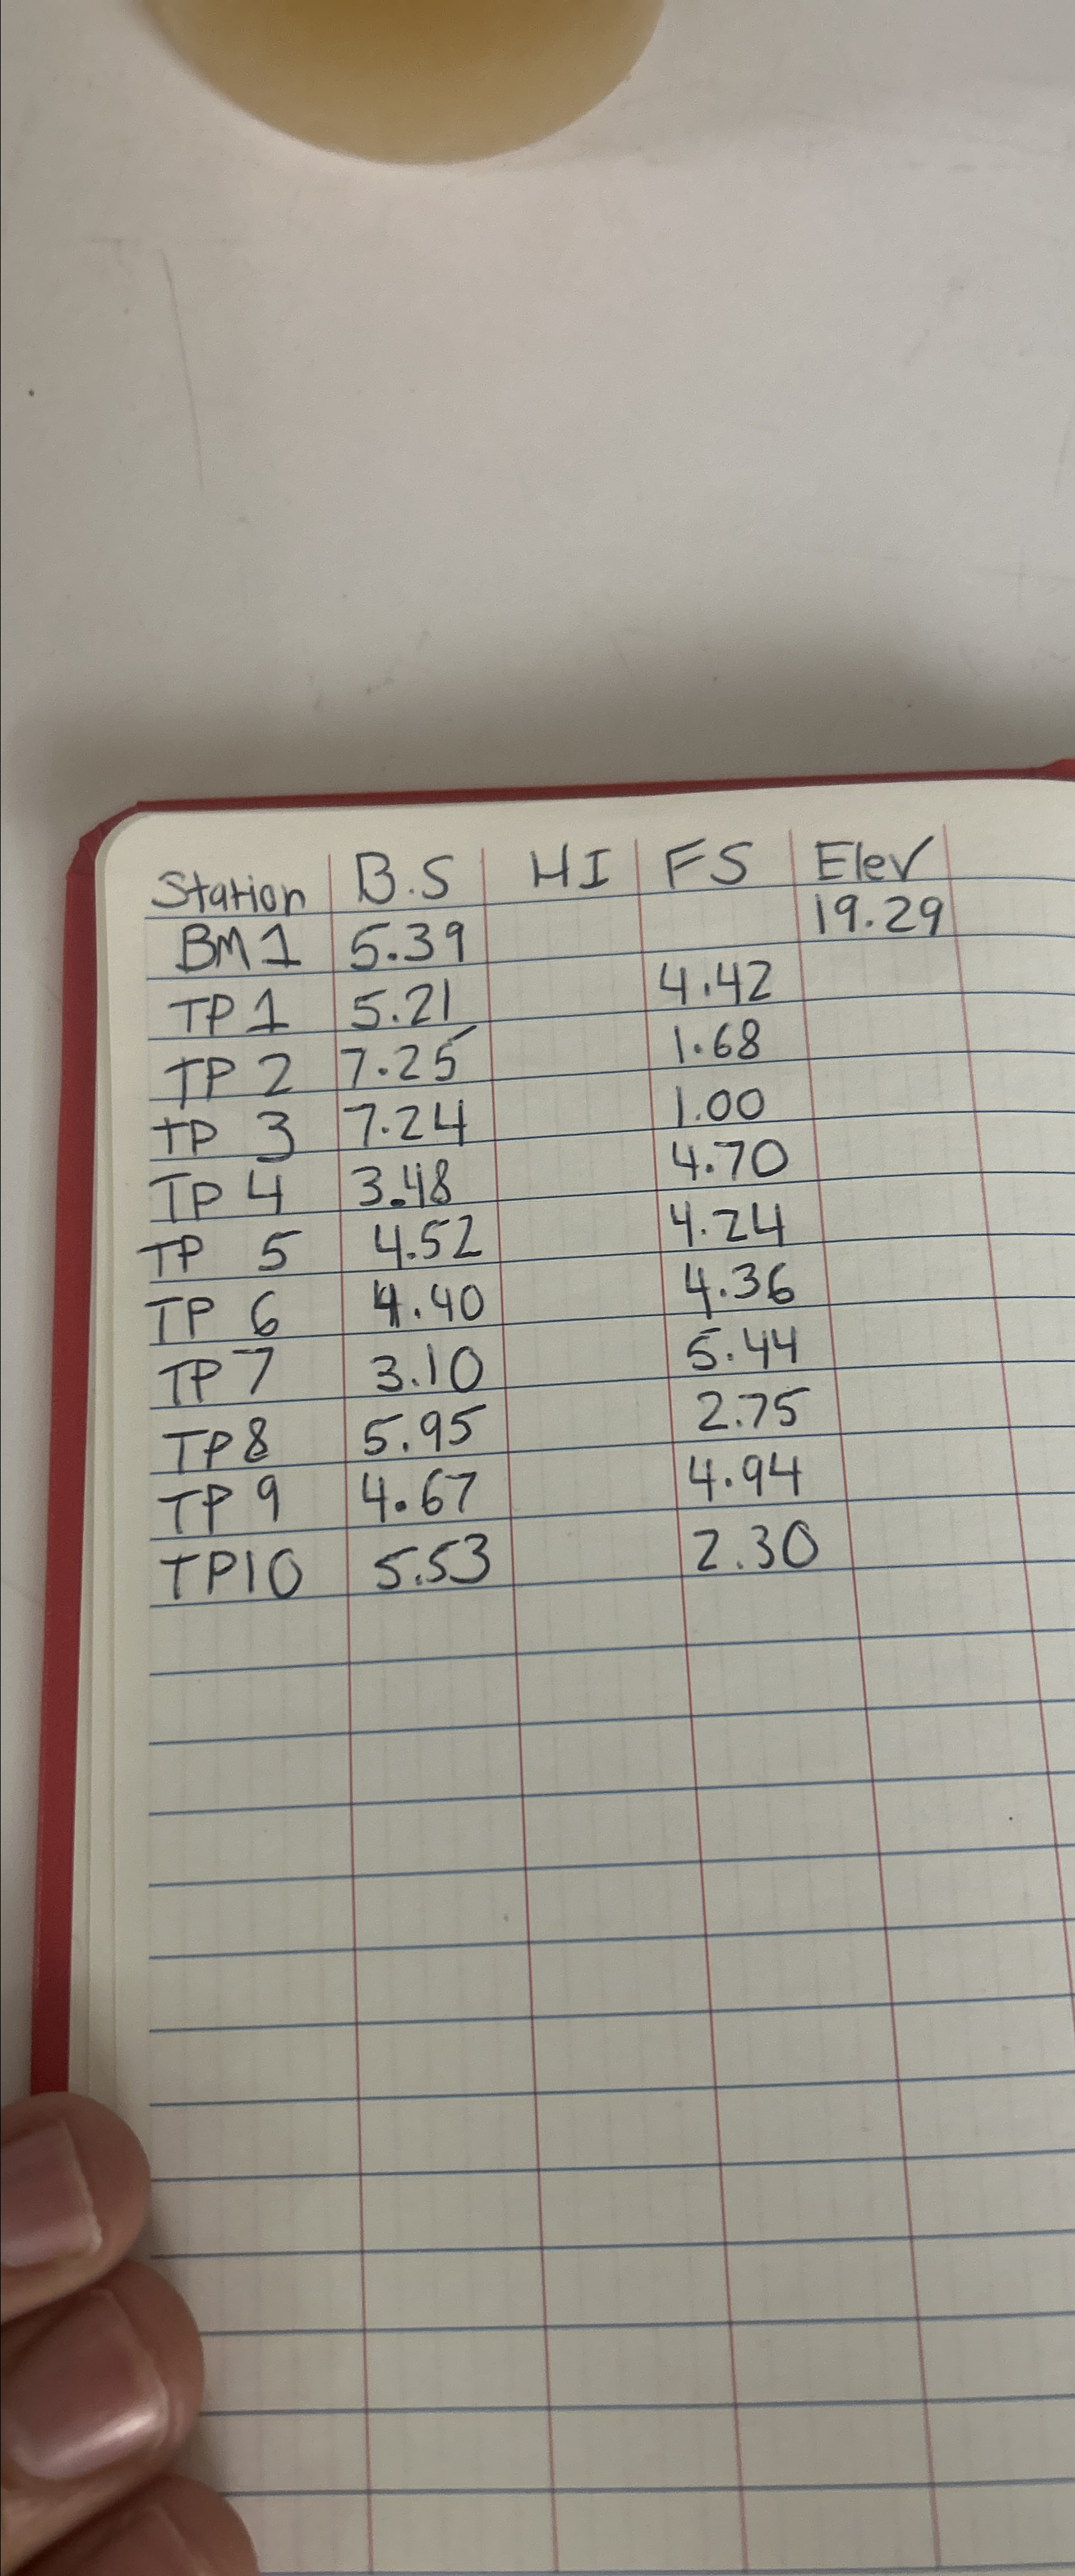 Station B.S HI FS Elev
BM1 5.39 19.29
TP1 5.21 4.42
TP 2 7.25 1.68
TP 3 7.24 1.00
TP 4 3.48 4.70
TP 5 4.52 4.24
TP 6 4.40 4.36
TP 7 3.10 5.44
TP8 5.95 2.75
TP 9 4.67 4.94
TP10 5.53 2.30